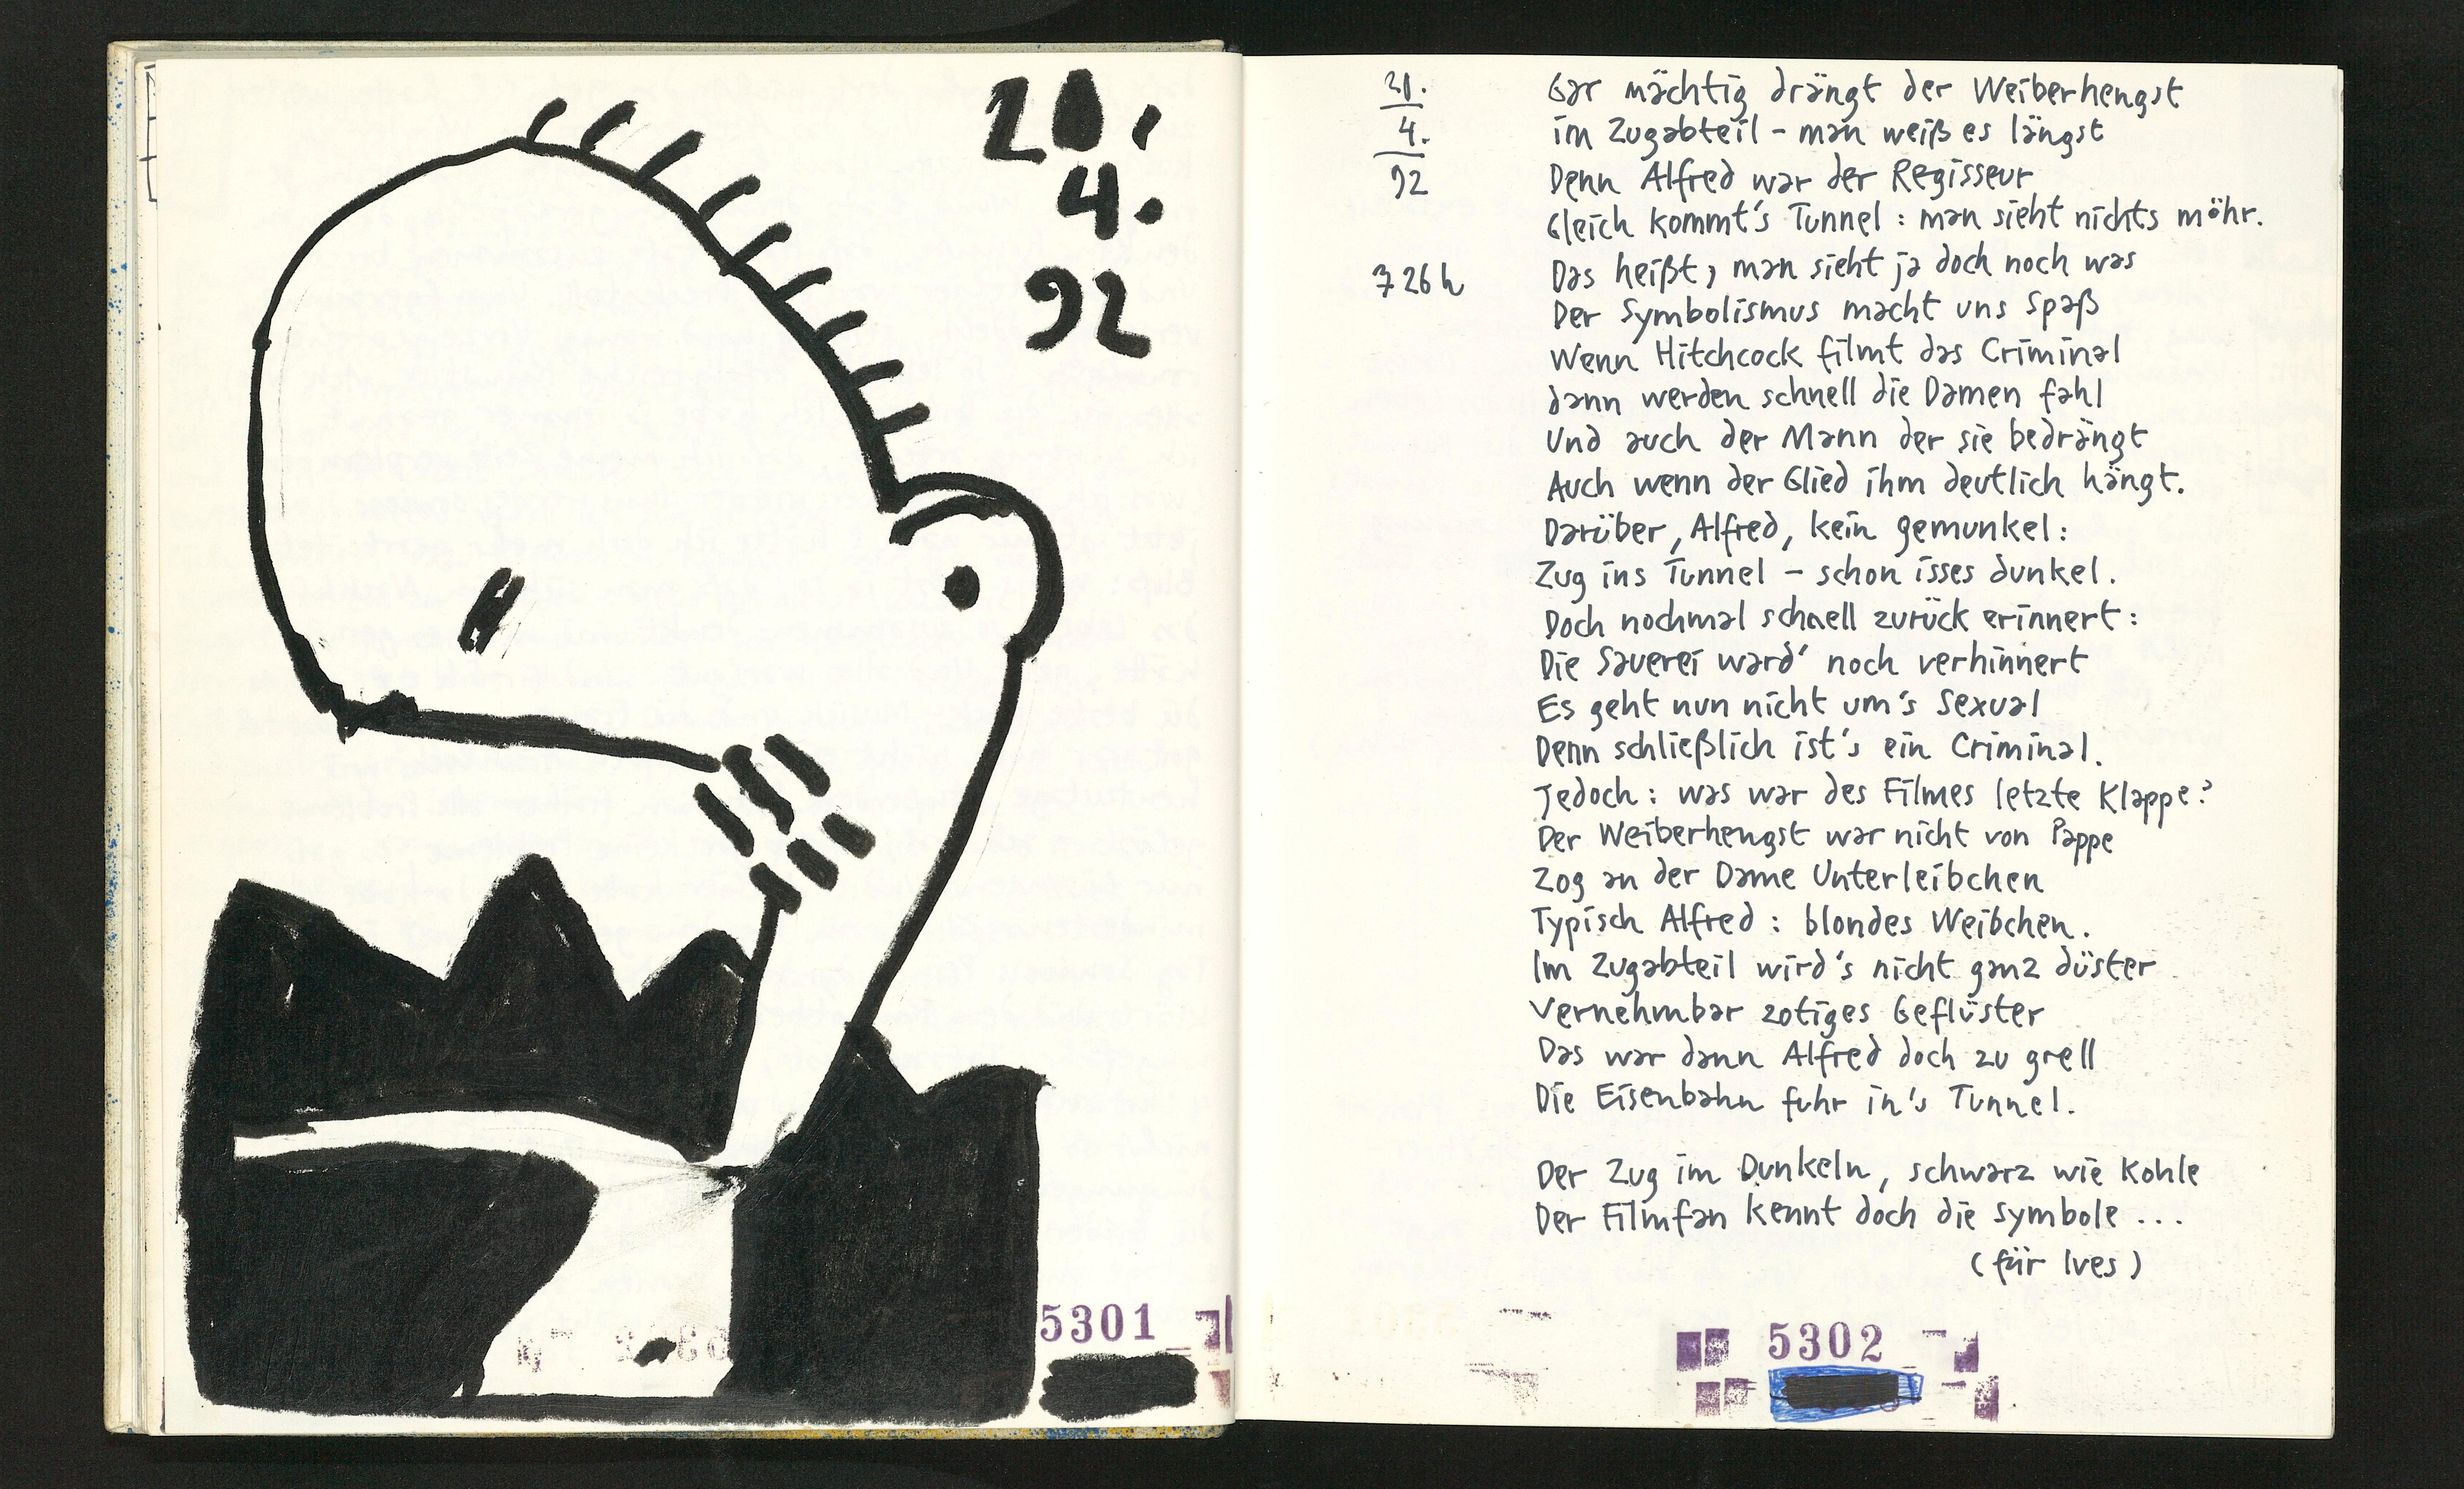 20.
4.
92
5301
21.
4.
92
726h
Gar mächtig drängt der Weiberhengst
im Zugabteil - man weiß es längst
Denn Alfred war der Regisseur
Gleich kommt's Tunnel: man sieht nichts möhr.
Das heißt, man sieht ja doch noch was
Der Symbolismus macht uns Spaß
Wenn Hitchcock filmt das Criminal
dann werden schnell die Damen fahl
Und auch der Mann der sie bedrängt
Auch wenn der Glied ihm deutlich hängt.
Darüber, Alfred, kein gemunkel:
Zug ins Tunnel - schon isses dunkel.
Doch nochmal schnell zurück erinnert:
Die Sauerei ward' noch verhinnert
Es geht nun nicht um's Sexual
Denn schließlich ist's ein Criminal.
Jedoch: was war des Filmes letzte Klappe?
Der Weiberhengst war nicht von Pappe
Zog an der Dame Unterleibchen
Typisch Alfred: blondes Weibchen.
Im Zugabteil wird's nicht ganz düster
Vernehmbar zotiges Geflüster
Das war dann Alfred doch zu grell
Die Eisenbahn fuhr in's Tunnel.
Der Zug im Dunkeln, schwarz wie Kohle
Der Filmfan kennt doch die Symbole...
(für Ives)
5302